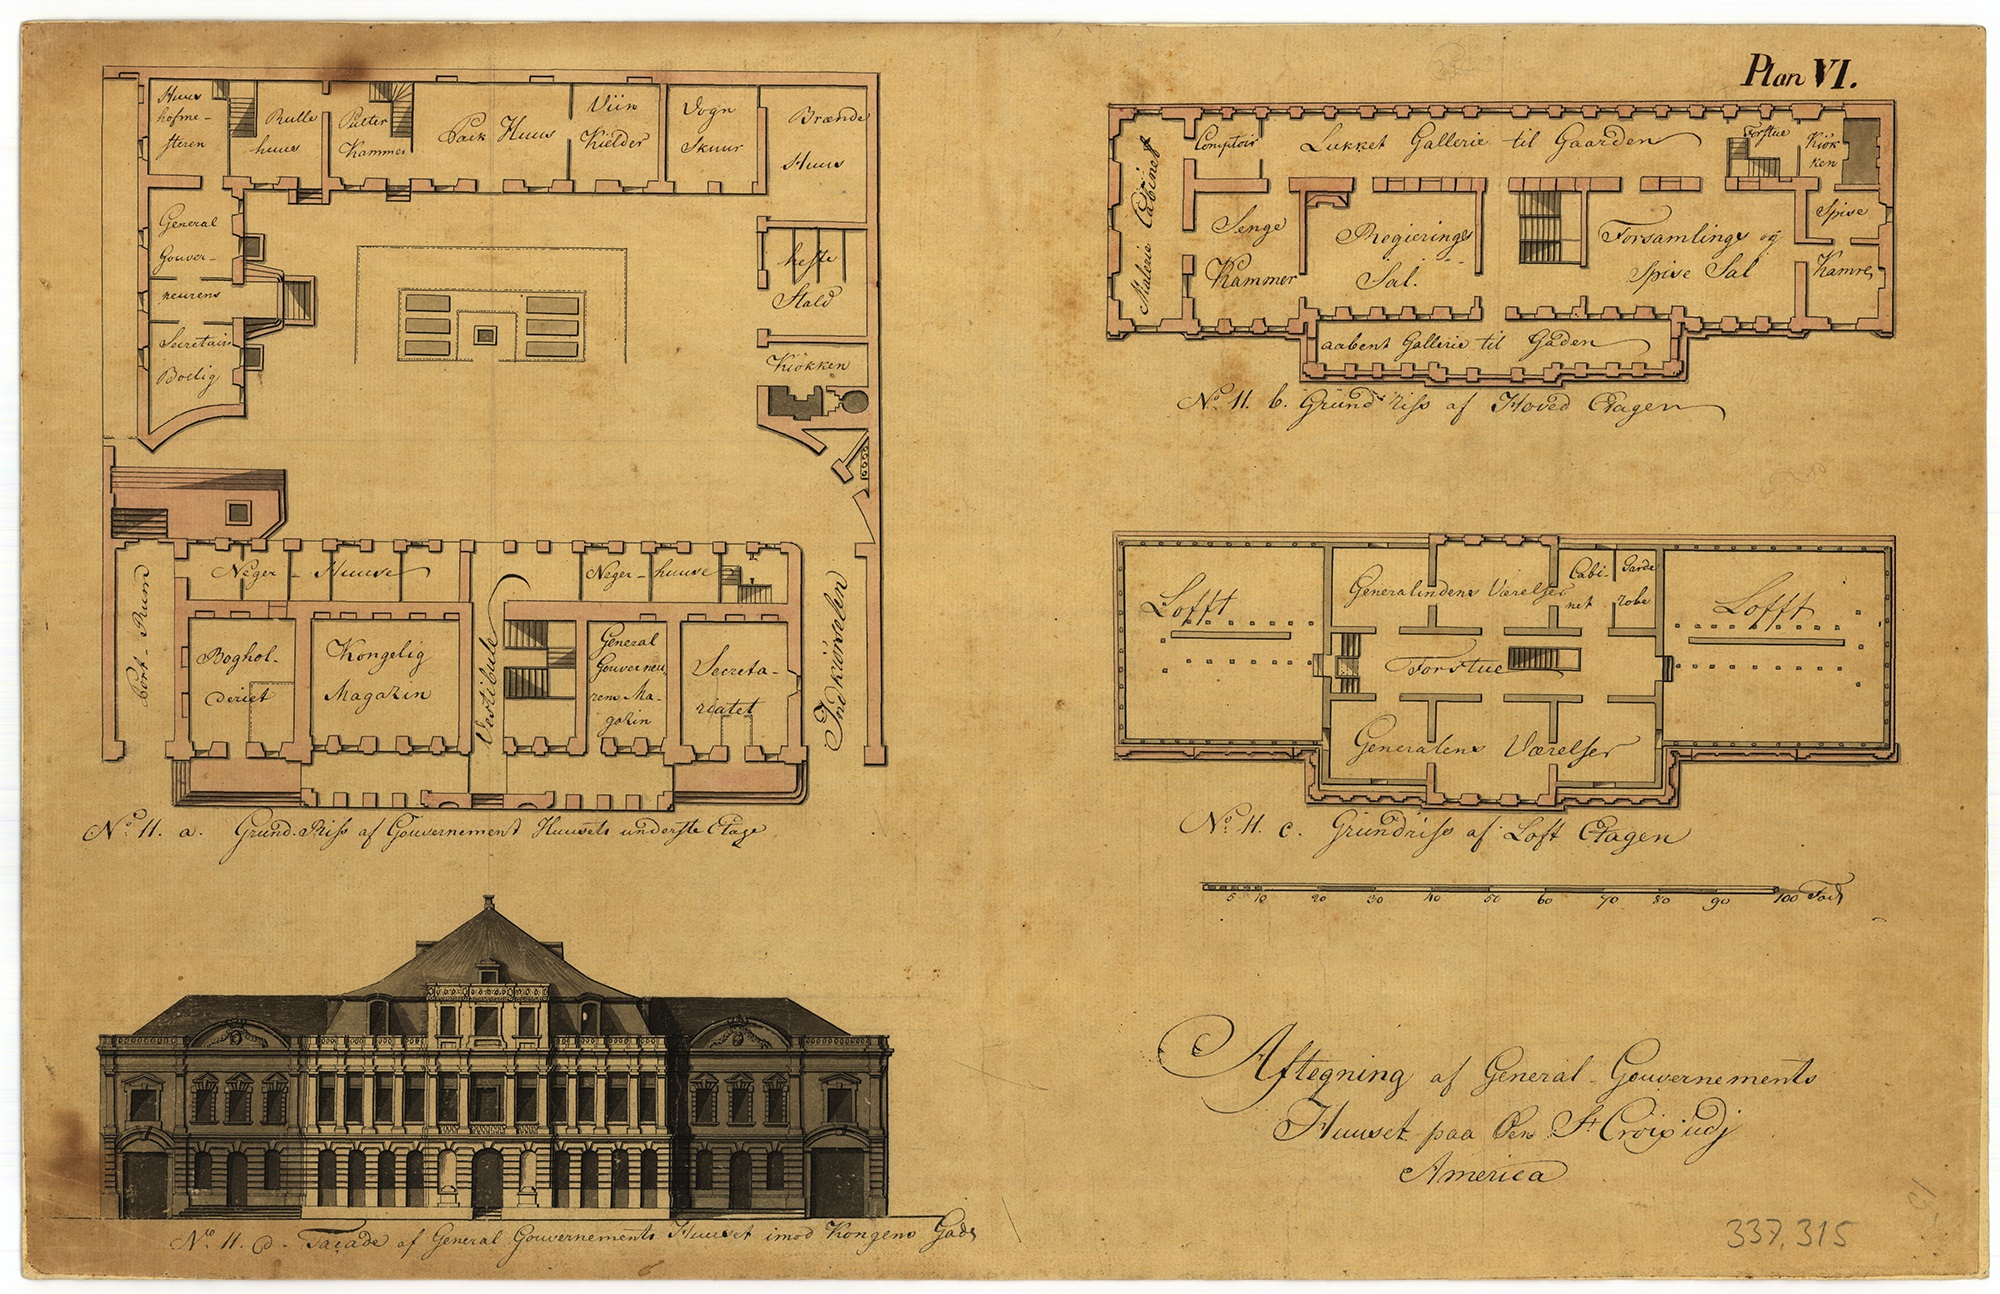 Plan VI.
Huus
hofme-
steren
Rulle
huus
Putter
Kammer
Pack Huus
Viin
Kielder
Vogn
Skuur
Brænde
Huus
General
Gouver-
neurens
Secretairs
Bolig
heste
Stald
Kiökken
Port-Rum
Neger-Huuse
Neger-huuse
Boghol-
deriet
Kongelig
Magazin
Vestibule
General
Gouverneu
rens Ma-
gazin
Secreta-
riatet
Indkiörselen
No 11. a. Grund-Riss af Gouvernement Huusets underste Etage
Malerie Cabinet
Comptoir
Lukket Gallerie til Gaarden
Forstue
Kiök-
ken
Senge
Kammer
Regierings
Sal.
Forsamlings og
Spise Sal
Spise
Kamre
aabent Gallerie til Gaden
No. 11. b. Grund-riss af Hoved Etagen
Lofft
Generalindens Værelser
Cabi-
net
Garde
robe
Lofft
Forstue
Generalens Værelser
No. 11. c. Grundriss af Loft Etagen
5 10 20 30 40 50 60 70 80 90 100
No 11. d. Façade af General Gouvernements Huuset imod Kongens Gade
Aftegning af General-Gouvernements
Huuset paa Öen St Croix udj
America
337,315